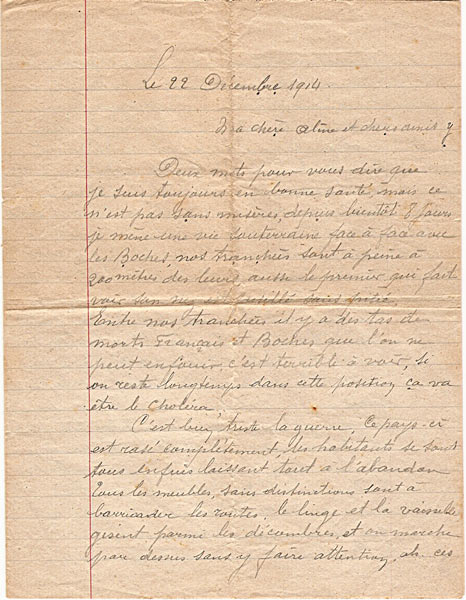 Le 22 Décembre 1914.
Ma chère Aline et chers amis
Deux mots pour vous dire que
je suis toujours en bonne santé, mais ce
n'est pas sans misères, depuis bientôt 8 jours
je mène une vie souterraine face à face avec
les Boches nos tranchées sont à peine à
200 mètres des leurs, aussi le premier qui fait
voir son nez est
Entre nos tranchées il y a des tas de
morts Français et Boches que l'on ne
peut enfouir, c'est terrible à voir, si
on reste longtemps dans cette position ça va
être le Choléra
C'est bien triste la guerre, Ce pays-ci
est rasé complètement, les habitants se sont
tous enfuies laissent tout à l'abandon
Tous les meubles, sans distinctions sont a
barricader les routes, le linge et la vaisselle
gisent parmi les décombres, et on marche
par dessus sans y faire attention, ah ces